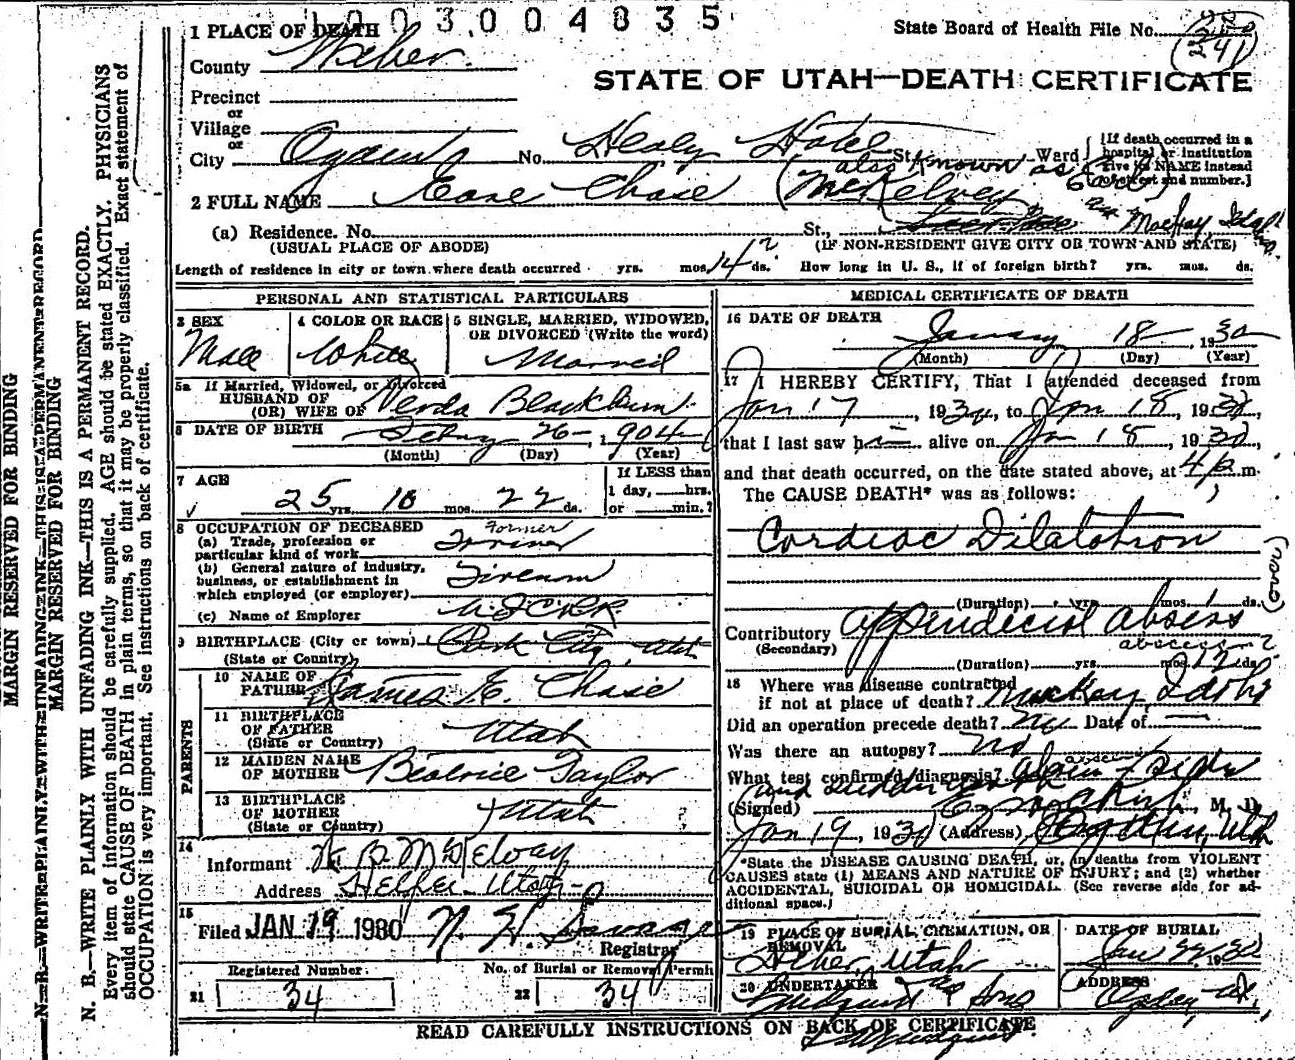 1003004835
State Board of Health File No.
(241)
1 PLACE OF DEATH
County Weber.
STATE OF UTAH—DEATH CERTIFICATE
Precinct
or
Village
or
City Ogden No. Healy Hotel St. Ward
[If death occurred in a hospital or institution give its NAME instead of street and number.]
also known as
2 FULL NAME Earl Chase (McKelvey
(a) Residence. No. St., Mackay Idaho
(USUAL PLACE OF ABODE) (IF NON-RESIDENT GIVE CITY OR TOWN AND STATE)
Length of residence in city or town where death occurred yrs. mos. 14 ds. How long in U. S., if of foreign birth? yrs. mos. ds.
PERSONAL AND STATISTICAL PARTICULARS
3 SEX 4 COLOR OR RACE 5 SINGLE, MARRIED, WIDOWED, OR DIVORCED (Write the word)
Male White Married
5a If Married, Widowed, or Divorced
HUSBAND OF
(OR) WIFE OF Verda Blackburn
6 DATE OF BIRTH Feby 26 1904
(Month) (Day) (Year)
7 AGE If LESS than
25 yrs. 10 mos. 22 ds. 1 day, hrs.
or min.?
8 OCCUPATION OF DECEASED
Former
(a) Trade, profession or
particular kind of work
(b) General nature of industry,
business, or establishment in
which employed (or employer) Fireman
(c) Name of Employer
9 BIRTHPLACE (City or town) Park City, Utah
(State or Country)
PARENTS
10 NAME OF
FATHER James E. Chase
11 BIRTHPLACE
OF FATHER Utah
(State or Country)
12 MAIDEN NAME
OF MOTHER Beatrice Taylor
13 BIRTHPLACE
OF MOTHER Utah
(State or Country)
14
Informant B. McKelvay
Address Heber Utah
15
Filed JAN 19 1930
Registrar
Registered Number. No. of Burial or Removal Permit
21 34 22 34
MEDICAL CERTIFICATE OF DEATH
16 DATE OF DEATH
January 18 1930
(Month) (Day) (Year)
17 I HEREBY CERTIFY, That I attended deceased from
Jan 17, 1930, to Jan 18, 1930,
that I last saw him alive on Jan 18, 1930,
and that death occurred, on the date stated above, at 4 p.m.
The CAUSE DEATH* was as follows:
Cardiac Dilatation
(over)
(Duration) yrs. mos. 1 ds.
Contributory Appendecial absess
(Secondary) abscess?
(Duration) yrs. mos. 12 ds.
18 Where was disease contracted
if not at place of death? Mackay Idaho
Did an operation precede death? no Date of —
Was there an autopsy? No
What test confirmed diagnosis?
(Signed) M. D.
Jan 19, 1930 (Address) Ogden, Utah
*State the DISEASE CAUSING DEATH, or, in deaths from VIOLENT
CAUSES state (1) MEANS AND NATURE OF INJURY; and (2) whether
ACCIDENTAL, SUICIDAL OR HOMICIDAL. (See reverse side for ad-
ditional space.)
19 PLACE OF BURIAL, CREMATION, OR
REMOVAL
Heber, Utah
DATE OF BURIAL
Jan 22 1930
20 UNDERTAKER
& Sons
ADDRESS
Ogden, Ut.
READ CAREFULLY INSTRUCTIONS ON BACK OF CERTIFICATE
MARGIN RESERVED FOR BINDING
N. B.—WRITE PLAINLY WITH UNFADING INK—THIS IS A PERMANENT RECORD
MARGIN RESERVED FOR BINDING
N. B.—WRITE PLAINLY WITH UNFADING INK—THIS IS A PERMANENT RECORD.
Every item of information should be carefully supplied. AGE should be stated EXACTLY. PHYSICIANS
should state CAUSE OF DEATH in plain terms, so that it may be properly classified. Exact statement of
OCCUPATION is very important. See instructions on back of certificate.